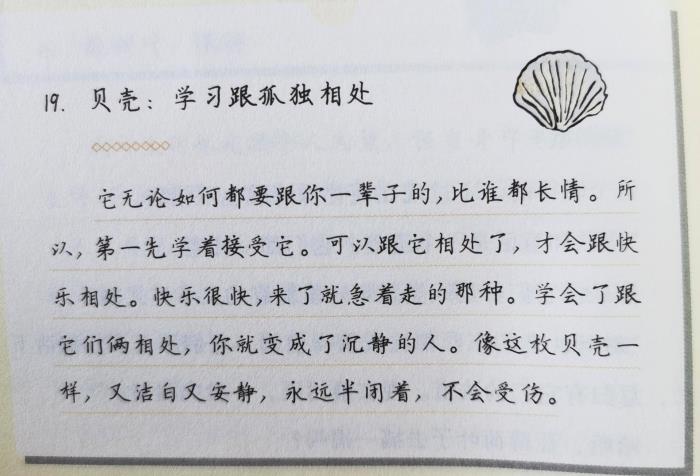 19. 贝壳：学习跟孤独相处
它无论如何都要跟你一辈子的，比谁都长情。所
以，第一先学着接受它。可以跟它相处了，才会跟快
乐相处。快乐很快，来了就急着走的那种。学会了跟
它们俩相处，你就变成了沉静的人。像这枚贝壳一
样，又洁白又安静，永远半闭着，不会受伤。